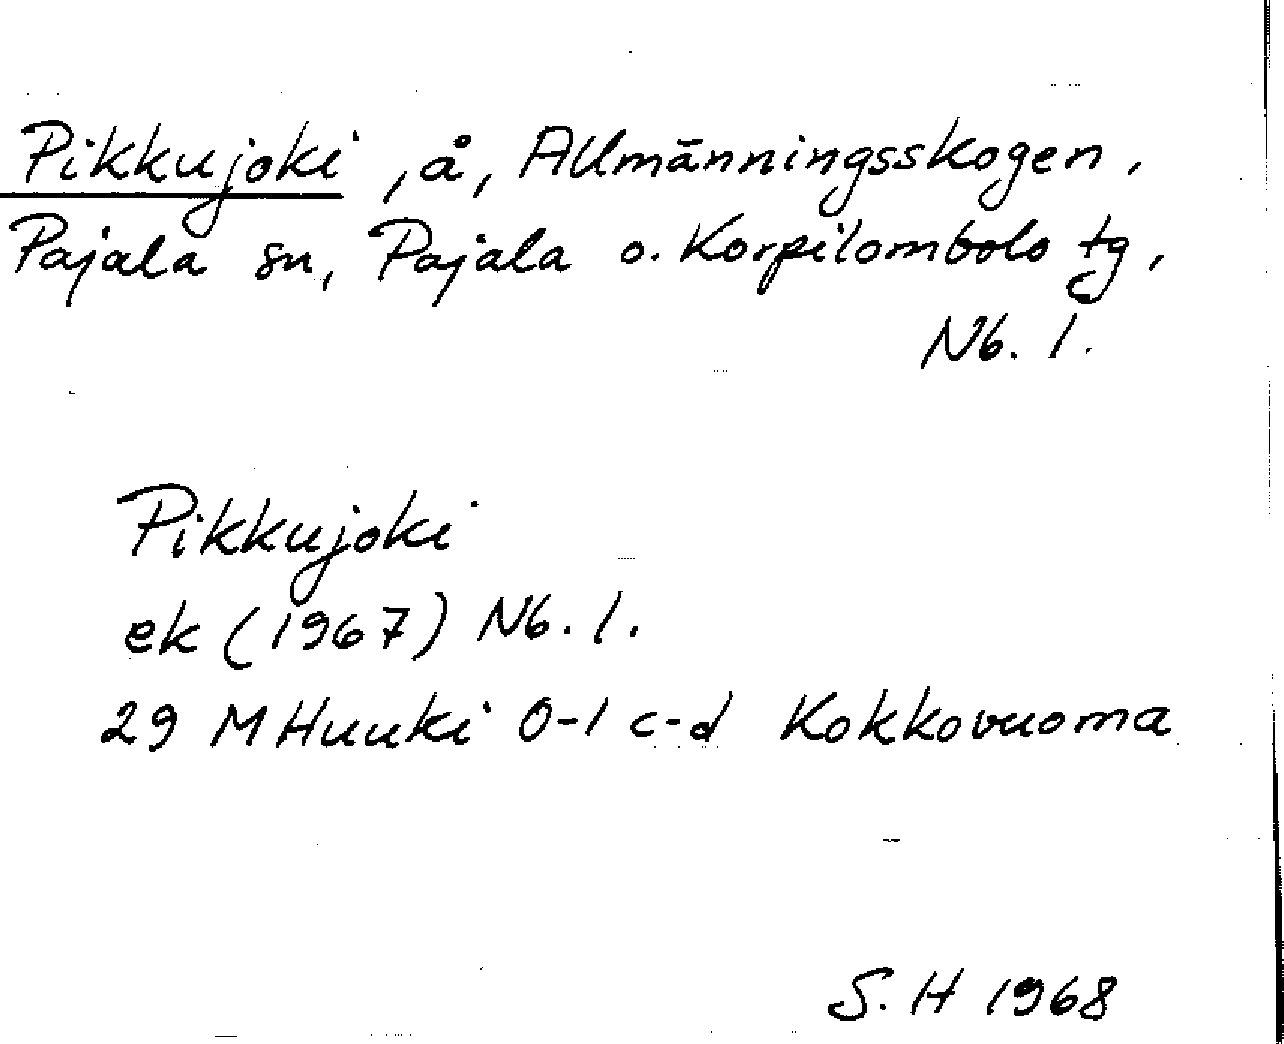 Pikkujoki, å, Allmänningsskogen,
Pajala sn, Pajala o. Korpilombolo tg,
Nb. l.
Pikkujoki
ek (1967) Nb. l.
29 M Huuki 0-1 c-d Kokkovuoma
S. H 1968